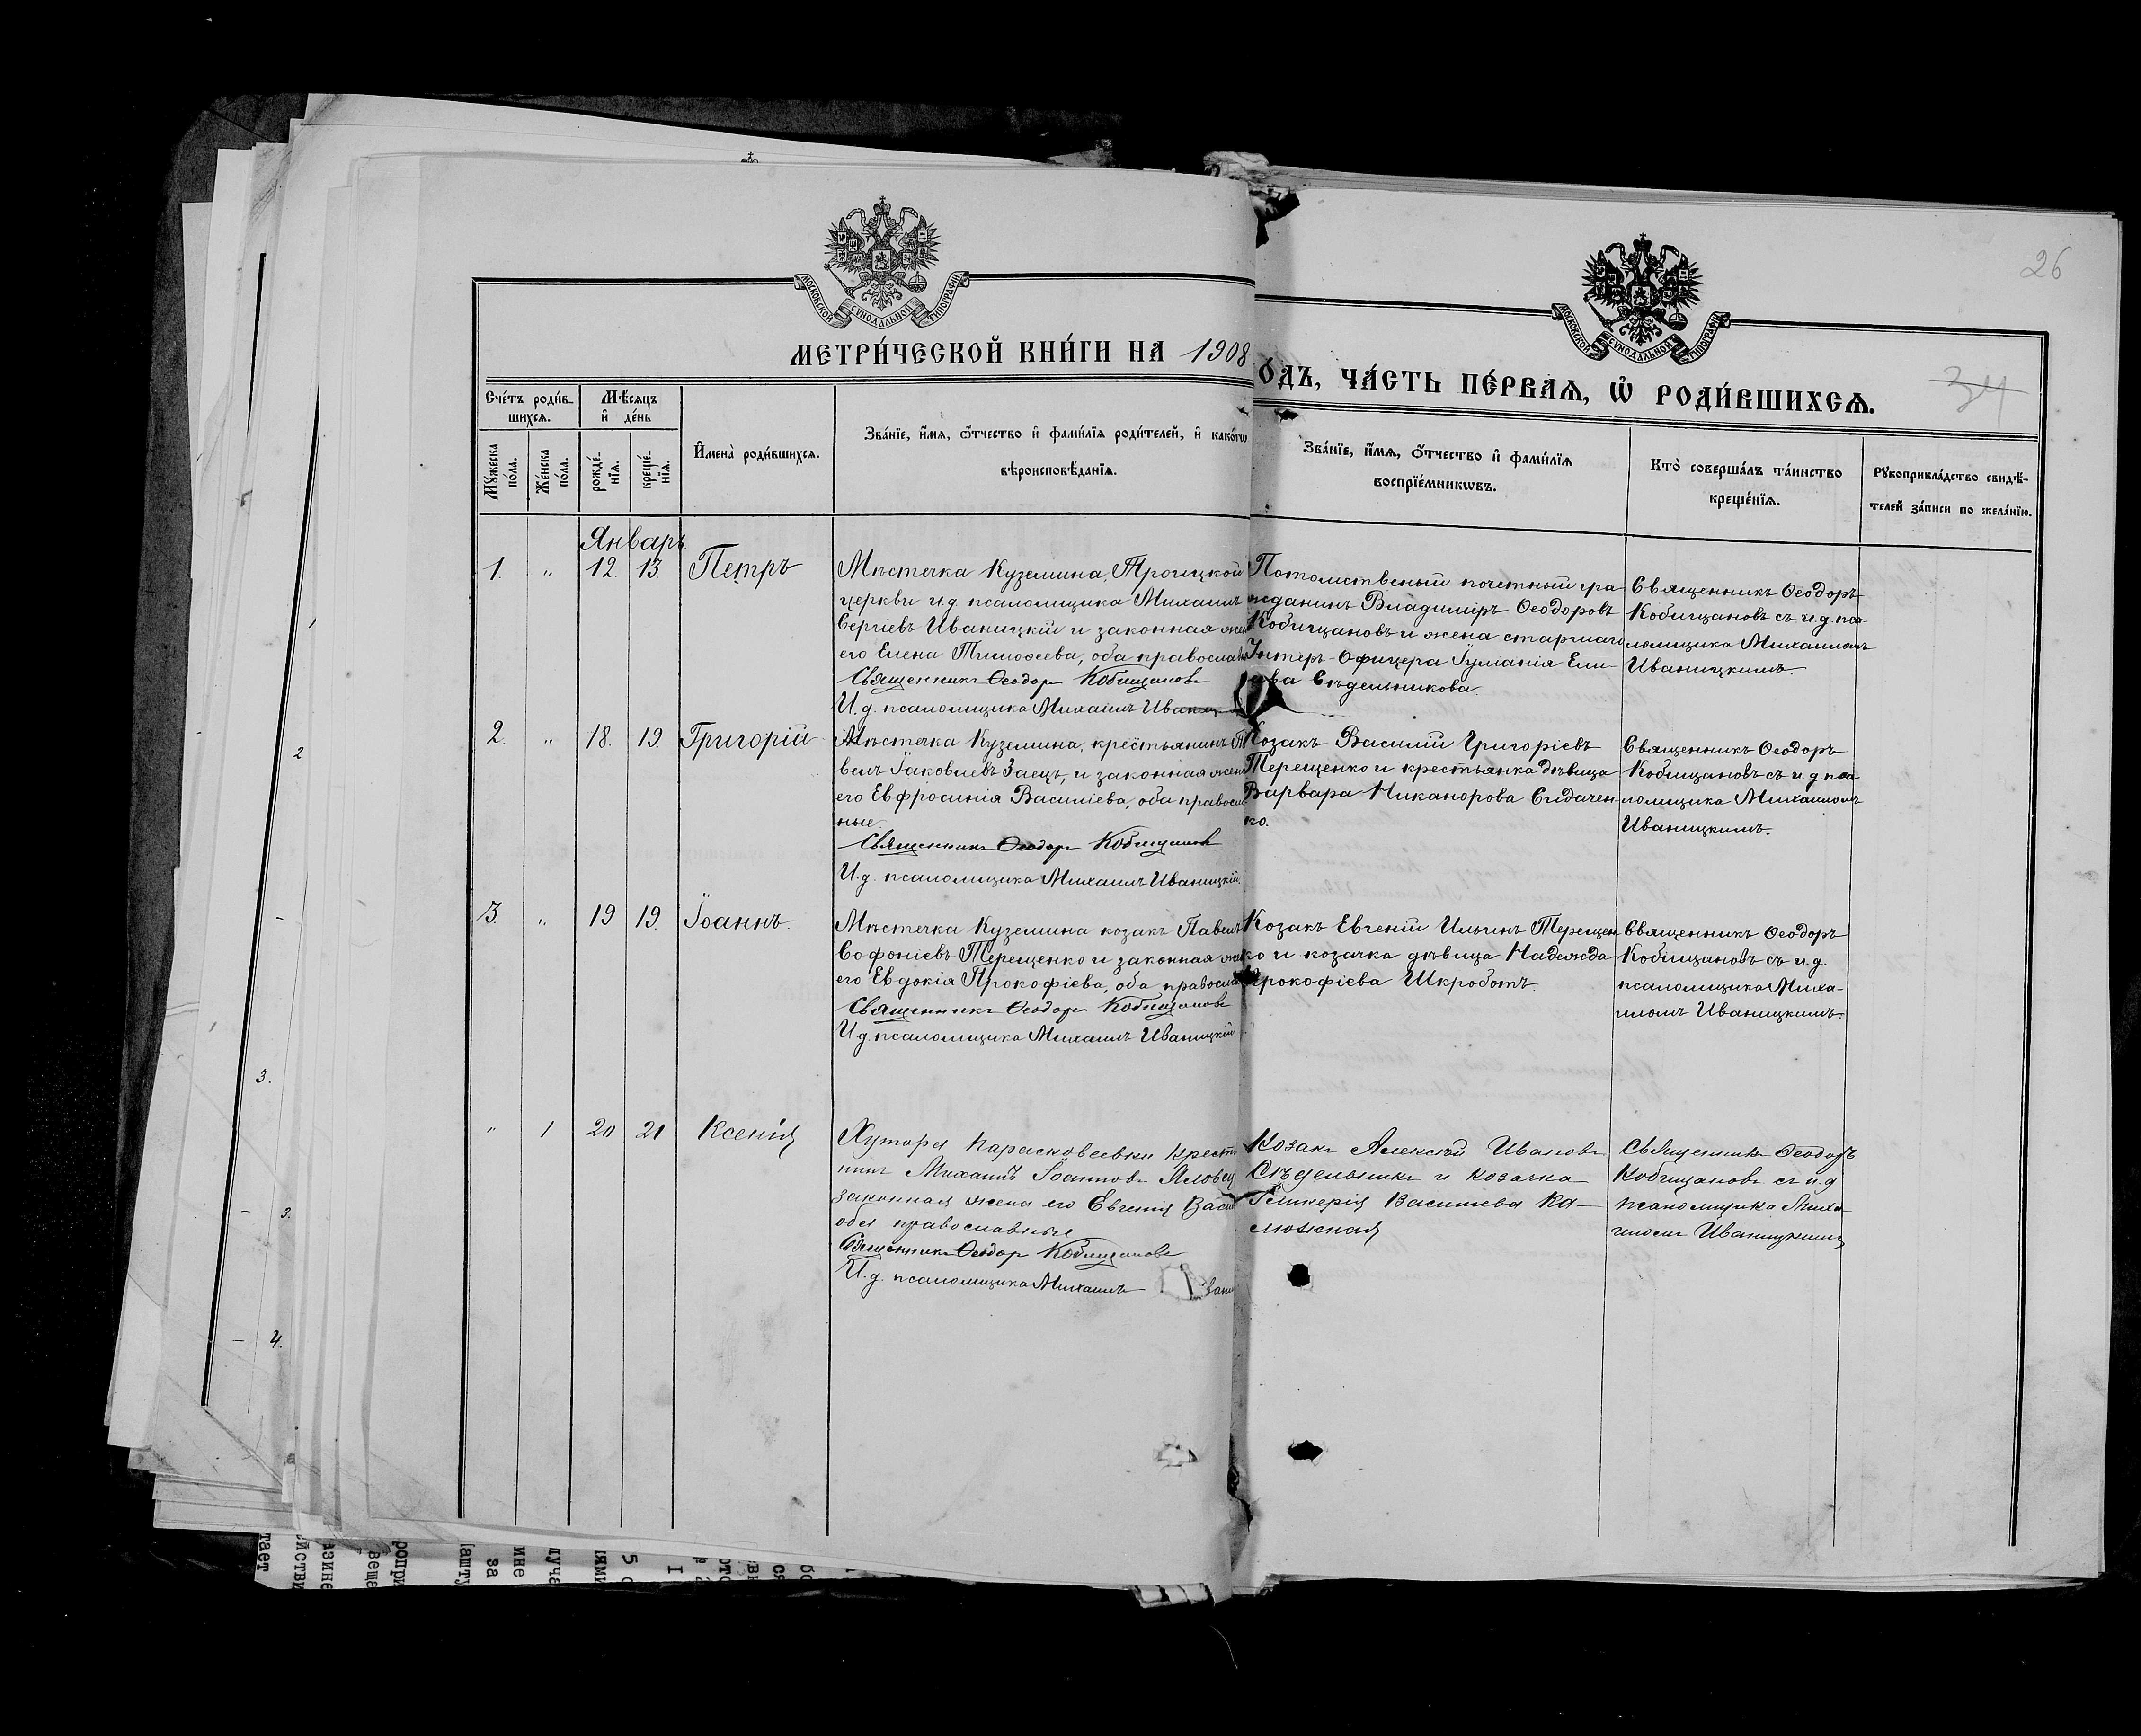 26
34
МОСКОВСКОЙ СУНОДАЛЬНОЙ ТИПОГРАФІИ
МОСКОВСКОЙ СУНОДАЛЬНОЙ ТИПОГРАФІИ
МЕТРИ́ЧЕСКОЙ КНИ́ГИ НА 1908
О́ДЪ, ЧА́СТЬ ПЕ́РВАѦ, Ѡ РОДИ́ВШИХСѦ.
Сче́тъ роди́в-
шихсѧ.
Мѣ́сѧцъ
и҆ де́нь
Мꙋ́жеска
по́ла.
Же́нска
по́ла.
рожде́-
нїѧ.
креще́-
нїѧ.
И҆мена̀ роди́вшихсѧ.
Зва́нїе, и҆́мѧ, ѻ҆́тчество и҆ фами́лїѧ роди́телей, и҆ како́гѡ
вѣроисповѣ́данїѧ.
Зва́нїе, и҆́мѧ, ѻ҆́тчество и҆ фами́лїѧ
воспрїе́мникѡвъ.
Кто̀ соверша́лъ та́инство
креще́нїѧ.
Рꙋкоприкла́дство свидѣ́-
телей за́писи по жела́нїю.
Январь
1. " 12. 13. Петръ
Мѣстечка Куземина, Троицкой
церкви и.д. псаломщика Михаилъ
Сергіевъ Иваницкій и законная жен
его Елена Тимоѳеева, оба православ
Священникъ Ѳеодоръ Кобищановъ
И.д. псаломщика Михаилъ Иваниц
Потомственый почетный гра
жданинъ Владиміръ Ѳеодоровъ
Кобищановъ и жена старшаго
Унтеръ-Офицера Іуліанія Ели-
Сѣдельникова.
Священникъ Ѳеодоръ
Кобищановъ съ и.д. пса-
ломщика Михаиломъ
Иваницкимъ.
2. " 18. 19. Григорій
Мѣстечка Куземина, крестьянинъ П
велъ Іаковлевъ Заецъ, и законная жена
его Евфросинія Василіева, оба правосла
ные.
Священникъ Ѳеодоръ Кобищановъ
И.д. псаломщика Михаилъ Иваницкій.
Козакъ Василій Григоріевъ
Терещенко и крестьянка дѣвица
Варвара Никанорова Сидачен
ко.
Священникъ Ѳеодоръ
Кобищановъ съ и.д. пса
ломщика Михаиломъ
Иваницкимъ.
3. " 19 19. Іоаннъ.
Мѣстечка Куземина козакъ Павелъ
Софоніевъ Терещенко и законная жен
его Евдокія Прокофіева, оба правосла
Священникъ Ѳеодоръ Кобищановъ
И.д. псаломщика Михаилъ Иваницкій
Козакъ Евгеній Ильинъ Терещен
ко и козачка дѣвица Надежда
Прокофіева Шкроботъ.
Священникъ Ѳеодоръ
Кобищановъ съ и.д.
псаломщика Миха-
иломъ Иваницкимъ.
" 1 20 21 Ксенія
Хутора Парасковеевки крестья
нинъ Михаилъ Іоанновъ Яловец
законная жена его Евгенія Васи
оба православные
Священникъ Ѳеодоръ Кобищановъ
И.д. псаломщика Михаилъ Івани
Козакъ Алексѣй Ивановъ
Сѣдельникъ и козачка
Гликерія Василіева Ка-
люжная
Священникъ Ѳеодоръ
Кобищановъ съ и.д
псаломщика Миха-
иломъ Иваницкимъ
1
2
3.
3.
4.